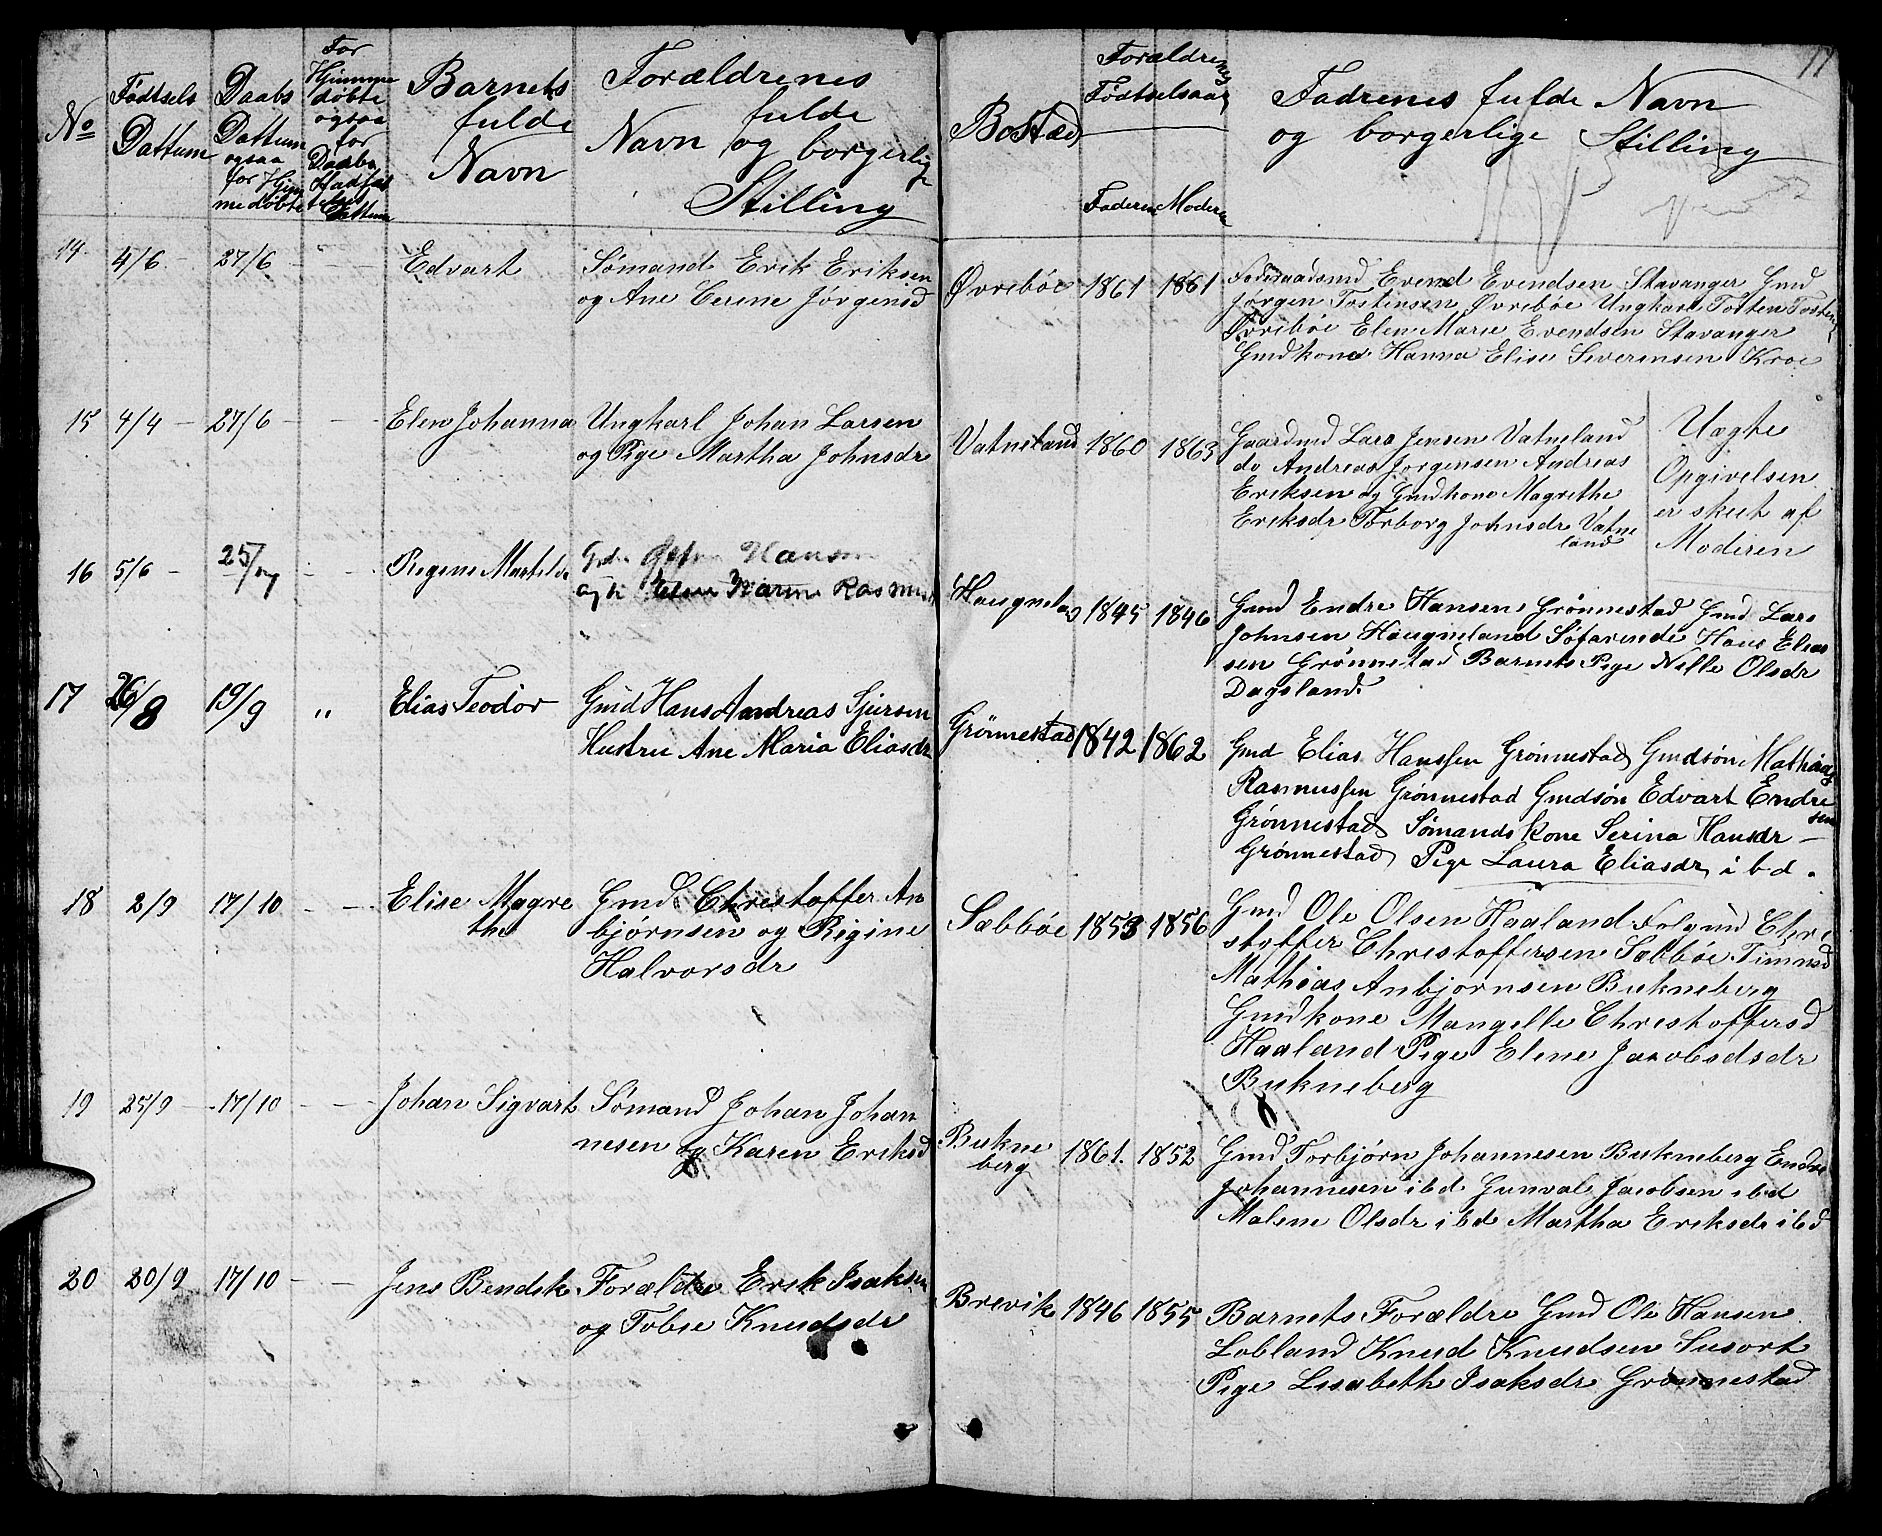 No
Fødtsels
Dattum
Daabs
Dattum
ogsaa
for Hjem
medøbte
For
Hjemme
døbte
ogsaa
for
Daabs
Stadfæs
telses
Dattum
Barnets
fulde
Navn
Forældrenes
fulde
Navn og borgerlige
Stilling
Bosted
Forældrenes
Fødtselsaar
Faderen Moderen
Fadrenes fulde Navn
og borgerlige Stilling
14. 4/6 - 27/6 - - Edvart
Sømand Erik Eriksen
og Ane Cerine Jørgensd
Øvrebøe 1861 1861
Evend Evendsen Stavanger Gmd
Jørgen Tostensen Øvrebøe Ungkarl Tosten Tosten
Øvrebøe Elen Marie Evendsen Stavanger
Gmdkone Hanna Elise Severensen Kroe
15 4/4 - 27/6 - - Elen Johanna
Ungkarl Johan Larsen
og Pige Martha Johnsdr
Vatneland 1860 1863
Gaardmd Lars Jensen Vatneland
do Andreas Jørgensen Andreas
Eriksen og Gmdkone Magrethe
Eriksdr Torborg Johnsdr Vatne
land
Uægte
Opgivelsen
er skeet af
Moderen
16 5/6 - 25/7 - - Regine
Hansen
Rasmusd
Haugneland 1845 1846
Gmd Endre Hansen Grønnestad Gmd Lars
Johnsen Haugneland Søfarende Hans Elias
sen Grønnestad Barnets Pige Nille Olsdr
Dagsland.
17 26/8 19/9 " Elias Teodor
Gmd Hans Andreas Sjursen
Hustru Ane Maria Eliasdr
Grønnestad 1842 1862
Gmd Elias Hanssen Grønnestad Gmdsøn Mathias
Rasmussen Grønnestad Gmdsøn Edvart Endre
sen
Grønnestad Sømandskone Serina Hansdr -
Grønnestad Pige Laura Eliasdr ibd.
18 2/9 17/10 - - Elise Magre
the
Gmd Christoffer An
bjørnsen og Rigine
Halvorsdr
Sæbbøe 1853 1856
Gmd Ole Olsen Haaland Folgmd Chri
stoffer Christoffersen Sæbbøe Timmd
Mathias Anbjørnsen Bukneberg
Gmdkone Mangelle Christoffersd
Haaland Pige Elene Jacobsdr
Bukneberg
19 25/9 - 17/10 - - Johan Sigvart
Sømand Johan Johan
nesen og Karen Eriksd
Bukne
berg
1861. 1852
Gmd Torbjørn Johannesen Bukneberg Endre
Johannesen ibd Gunval Jacobsen ibd
Malene Olsdr ibd Martha Eriksdr ibd
20 20/9 17/10 - - Jens Bendik
Forældre Erik Isaksen
og Tobie Knudsdr
Brevik 1846 1855
Barnets Forældre Gmd Ole Hansen
Lobland Knud Knudsen Susort
Pige Lisabeth Isaksdr Grønnestad